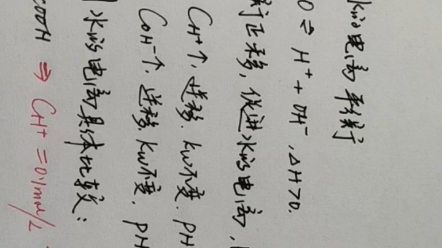 水的电离平衡
O ⇌ H⁺ + OH⁻, ΔH>0.
正移, 促进水的电离,
CH⁺↑, 逆移. Kw不变. PH
COH⁻↑. 逆移. Kw不变. PH
水的电离具体比较:
COOH ⇒ CH⁺ = 0.1mol/L